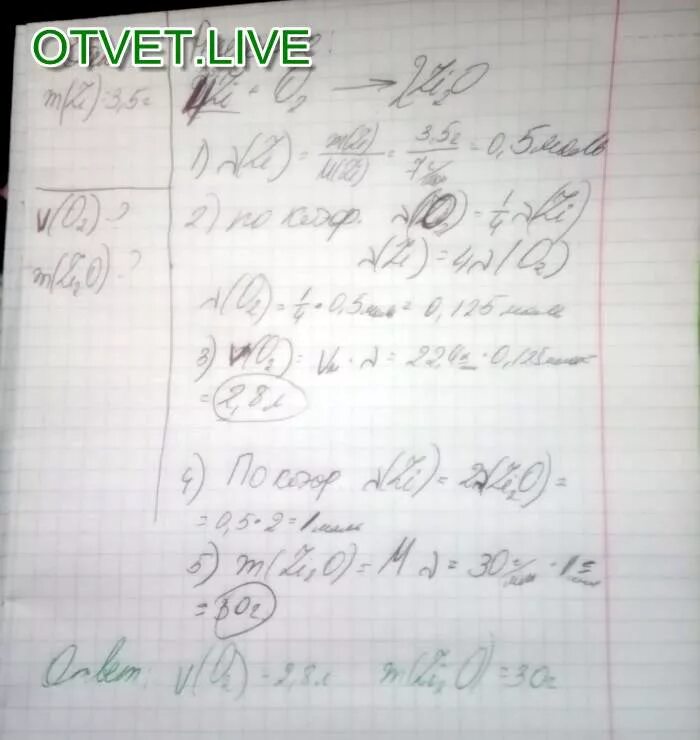 OTVET.LIVE
m(Li)=3,5г
4Li + O₂ → 2Li₂O
1) λ(Li) = m(Li)/M(Li) = 3,5г/7г/моль = 0,5 моль
V(O₂) ?
m(Li₂O) ?
2) по коэф. λ(O₂) = 1/4 λ(Li)
λ(Li) = 4λ(O₂)
λ(O₂) = 1/4 · 0,5моль = 0,125 моль
3) V(O₂) = Vм · λ = 22,4 · 0,125моль
= 2,8 л
4) По коэф λ(Li) = 2λ(Li₂O) =
= 0,5·2 = 1 моль
5) m(Li₂O) = M λ = 30г/моль · 1
= 30г
Ответ: V(O₂) = 2,8 л m(Li₂O) = 30г